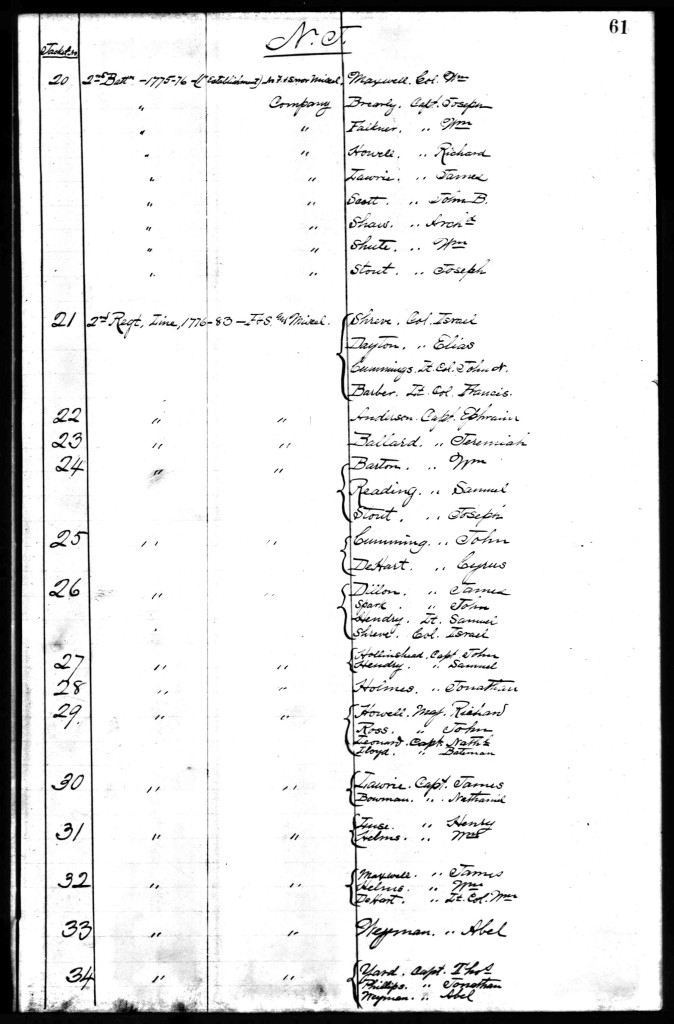 61
N. J.
Jacket No
20 2nd Battn - 1775-76 - (1st Establishment) F & S Miscel. Maxwell. Col. Wm
" Company Brearly. Capt. Joseph
" " Faulkner. " Wm
" " Howell. " Richard
" " Lawrie. " James
" " Scott. " John B.
" " Shaw. " Archd
" " Shute. " Wm
" " Stout. " Joseph
21 2nd Regt, Line, 1776-83 - F & S. and Miscel. Shreve. Col. Israel
Dayton. " Elias
Cummings. Lt. Col. John N.
Barber. Lt. Col. Francis.
22 " " Anderson. Capt. Ephraim
23 " " Ballard. " Jeremiah
24 " " Barton. " Wm
Reading. " Samuel
Stout. " Joseph
25 " " Cumming. " John
DeHart. " Cyrus
26 " " Dillon. " James
Spark. " John
Hendry. Lt. Samuel
Shreve. Col. Israel
27 " " Hollinshead. Capt. John
Hendry. " Samuel
28 " " Holmes. " Jonathan
29. " " Howell. Maj. Richard
Ross. " John
Leonard. Capt. Nathl
Lloyd. " Bateman
30 " " Lawrie. Capt. James
Bowman. " Nathaniel
31 " " Luse. " Henry
Helms. " Wm
32 " " Maxwell. " James
Helms. " Wm
DeHart. " Lt. Col. Wm
33 " " Weyman. " Abel
34 " " Yard. Capt. Thos
Phillips. " Jonathan
Weyman. " Abel